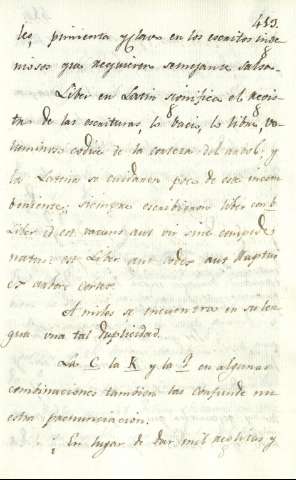 453.
les, pimienta y clavo en los escritos inge
niosos que requieren semejante salsa.
Liber en Latin significa el regis
tro de las escrituras, lo vacio, lo libre, vo
luminos codice de la corteza del arbol: y
la Latina se cuidaron poco de este incon
beniente; siempre escribieron liber con b
Liber id est vacuus aut vir sine
naturæ est Liber aut codex aut
ex arbore cortex.
A miles se encuentran en su len
gua una tal duplicidad.
La C. la K y la q en algunas
combinaciones tambien las confunde nu
estra pronunciacion.
¿En lugar de dar mil acolitas y